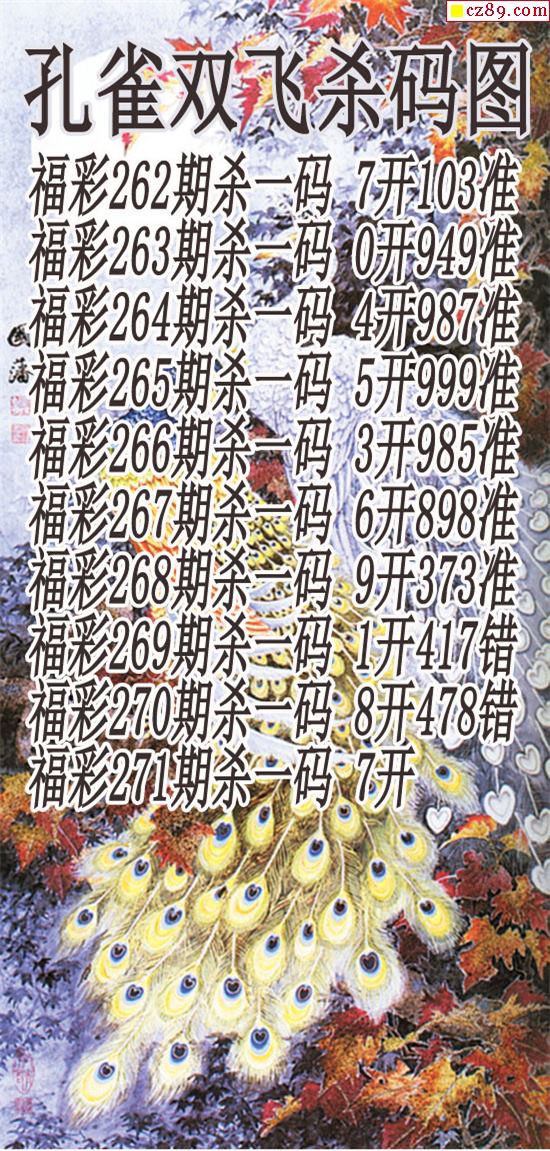 cz89.com
孔雀双飞杀码图
福彩262期杀一码 7开103准
福彩263期杀一码 0开949准
福彩264期杀一码 4开987准
福彩265期杀一码 5开999准
福彩266期杀一码 3开985准
福彩267期杀一码 6开898准
福彩268期杀一码 9开373准
福彩269期杀一码 1开417错
福彩270期杀一码 8开478错
福彩271期杀一码 7开